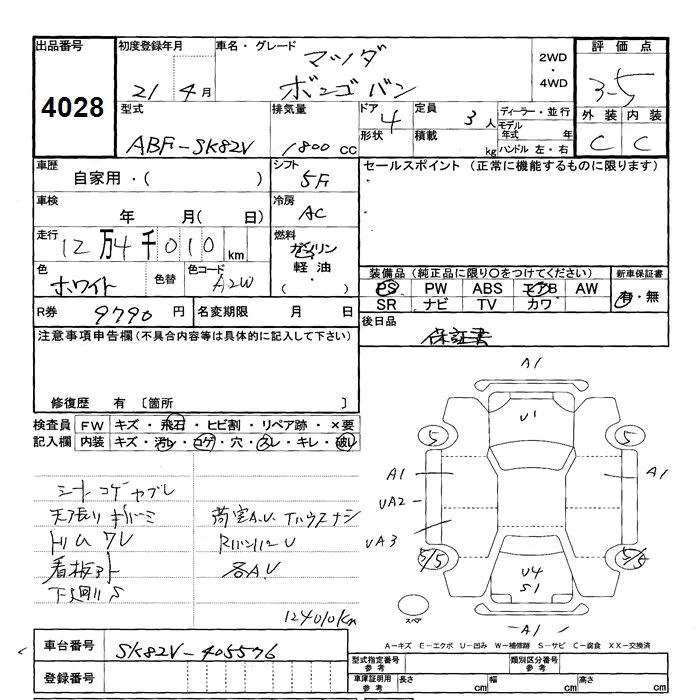 出品番号 初度登録年月 車名・グレード マツダ 2WD ・ 4WD 評価点
4028 21 4月 ボンゴバン 3-5
型式 排気量 ドア 4 定員 3人 ディーラー・並行 外装 内装
ABF-SK82V 1800cc 形状 積載 kg モデル年式 年 C C
ハンドル 左・右
車歴 シフト セールスポイント (正常に機能するものに限ります)
自家用・( ) 5F
車検 冷房
年 月( 日) AC
走行 燃料
12万4千010km ガソリン
軽油
( ・ )
色 色替 色コード 装備品 (純正品に限り○をつけてください) 新車保証書
ホワイト A2W PS PW ABS エアB AW 有・無
SR ナビ TV カワ
R券 9790円 名変期限 月 日 後日品
保証書
注意事項申告欄(不具合内容等は具体的に記入して下さい)
修復歴 有 〔箇所 〕
検査員 FW キズ・飛石・ヒビ割・リペア跡・×要
記入欄 内装 キズ・汚レ・コゲ・穴・スレ・キレ・破レ
シートコゲヤブレ
天張リキバミ 荷室A.U.
トリムワレ RバンパーU
看板アト 各A.U
下廻リS
124010km
A1
U1
5 5
A1 A1
UA2
UA3
5/5 5/5
U4
S1
スペア
A1
A-キズ E-エクボ U-凹み W-補修跡 S-サビ C-腐食 XX-交換済
車台番号 SK82V-405576
登録番号
型式指定番号 参考 類別区分番号 参考
車庫証明用 参考 長さ cm 幅 cm 高さ cm